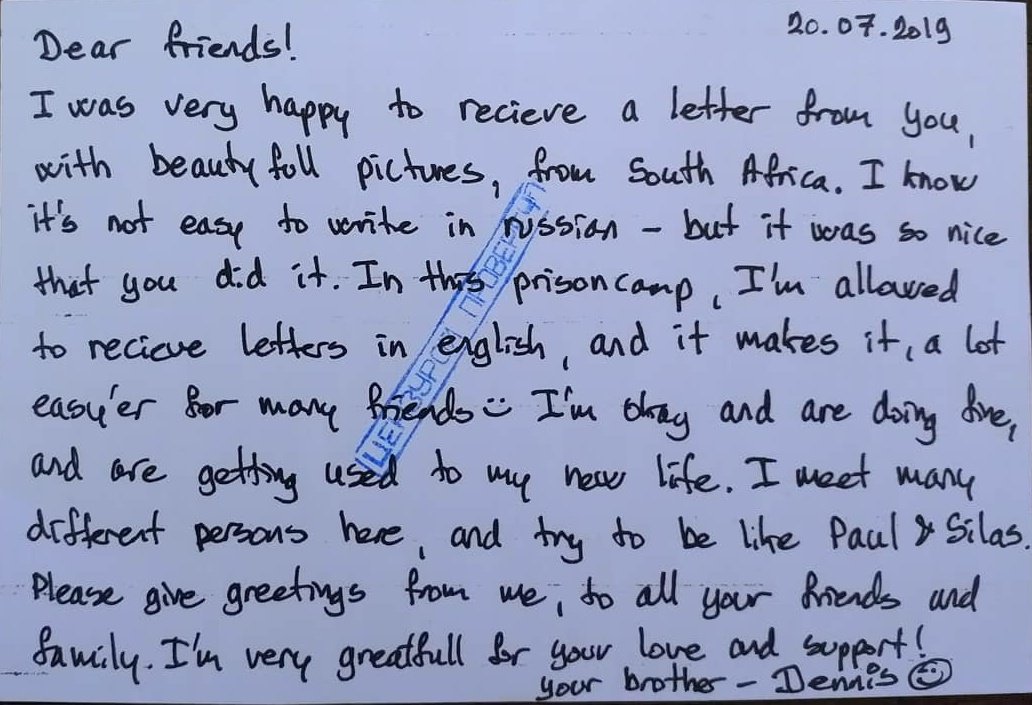 20.07.2019
Dear friends!
I was very happy to recieve a letter from you,
with beautyfull pictures, from South Africa. I know
it's not easy to write in russian – but it was so nice
that you did it. In this prisoncamp, I'm allowed
to recieve letters in english, and it makes it, a lot
easy'er for many friends :) I'm okay and are doing fine,
and are getting used to my new life. I meet many
different persons here, and try to be like Paul & Silas.
Please give greetings from me, to all your friends and
family. I'm very greatfull for your love and support!
your brother – Dennis ☺
ЦЕНЗУРОЙ ПРОВЕРЕНО